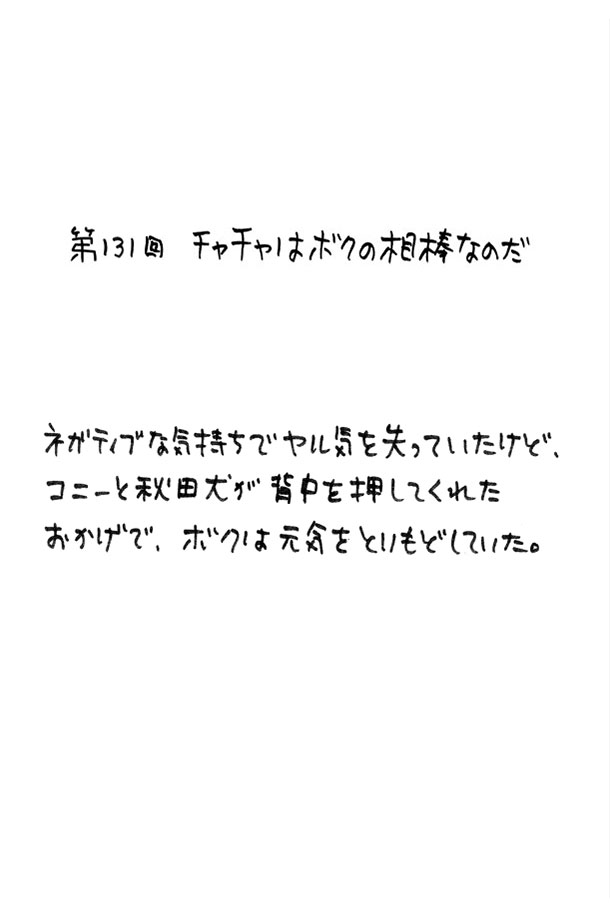 第131回 チャチャはボクの相棒なのだ
ネガティブな気持ちでヤル気を失っていたけど、
コニーと秋田犬が背中を押してくれた
おかげで、ボクは元気をとりもどしていた。